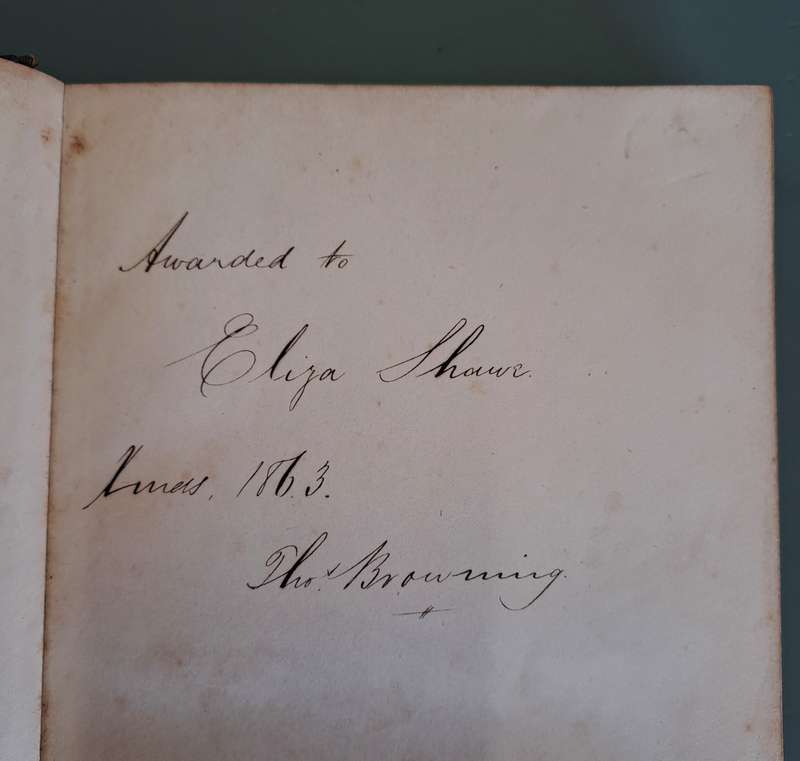 Awarded to
Eliza Shawe.
Xmas, 1863.
Thos. Browning.